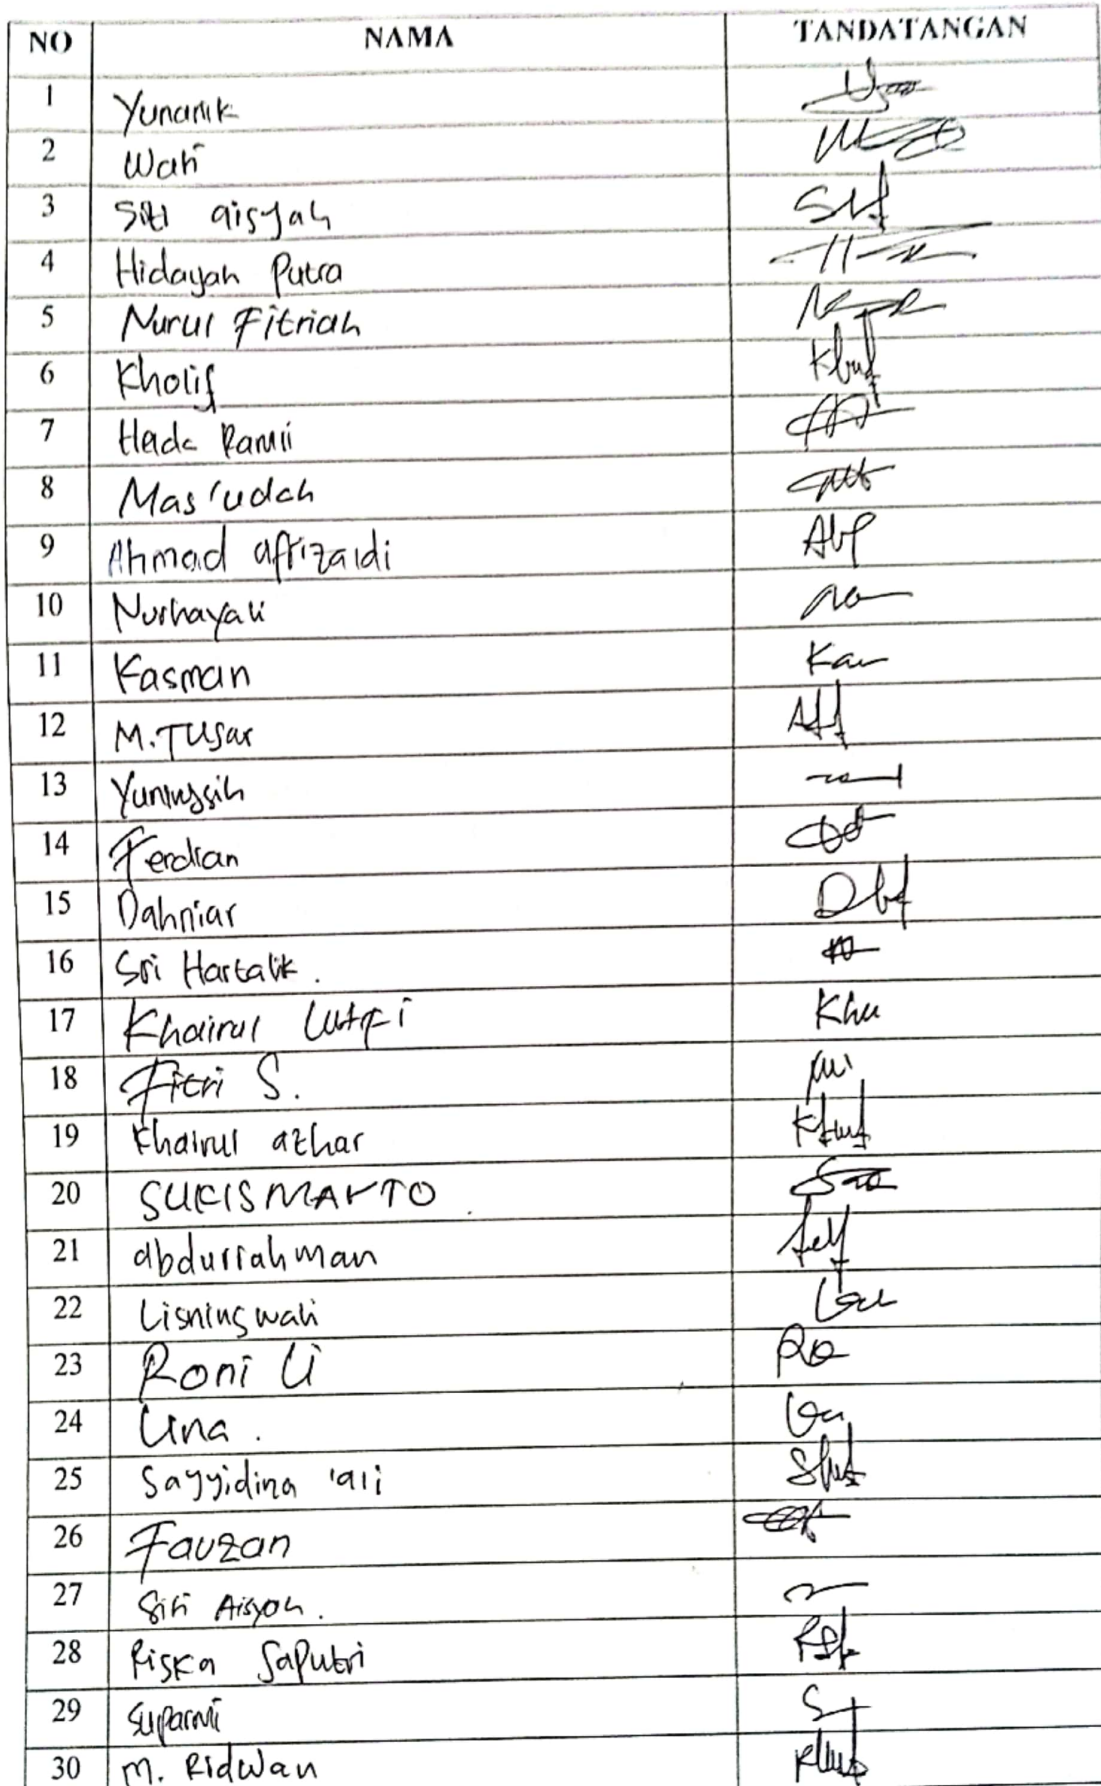 NO NAMA TANDATANGAN
1 Yunanik
2 Wati
3 Siti aisyah
4 Hidayah Putra
5 Nurul Fitriah
6 Kholif
7
8 Mas'udah
9 Ahmad afrizaldi
10 Nurhayati
11 Kasman Kan
12 M. TUSar
13 Yuningsih
14 Ferdian
15 Dahniar
16 Sri Hartatik.
17 Khairul Lutfi Khu
18 Fitri S.
19 Khairul azhar
20 SUKISMANTO
21 abdurrahman
22 Lisningwati
23 Roni Li
24 Lina.
25 Sayyidina 'ali
26 Fauzan
27 Siti Aisyah.
28 Riska Saputri
29 Suparmi
30 M. Ridwan